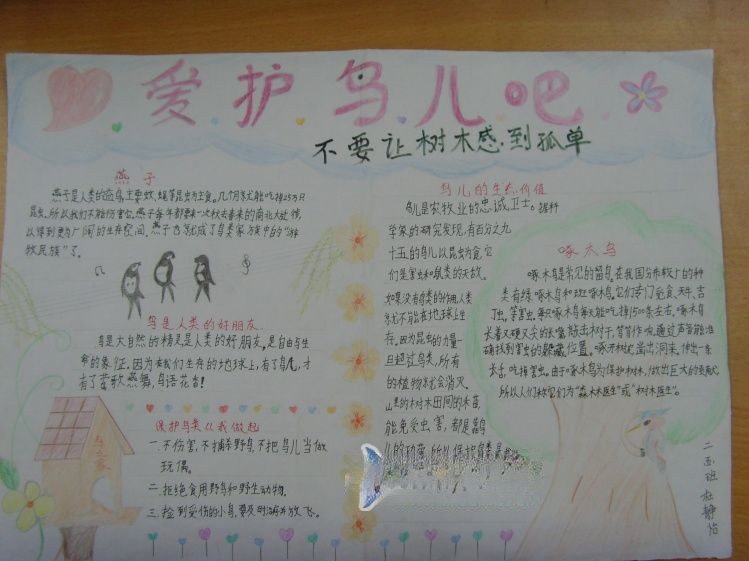 爱护鸟儿吧
不要让树木感到孤单
燕子
燕子是人类的益鸟,主要蚊,蝇等昆虫为主食。几个月就能吃掉25万只
昆虫。所以我们不能伤害它。燕子每年都要来一次秋去春来的南北大
以得到更为广阔的生存空间。燕子也就成了鸟类家族中的“游
牧民族”了。
鸟是人类的好朋友
鸟是大自然的精灵是人类的好朋友。是自由与生
命的象征。因为在我们生存的地球上,有了鸟儿,才
有了莺歌燕舞,鸟语花香!
鸟之家
保护鸟类从我做起
一.不伤害,不捕杀野鸟,不把鸟儿当做
玩偶。
二.拒绝食用野鸟和野生动物。
三.捡到受伤的小鸟,要及时治疗放飞。
鸟儿的生态价值
鸟儿是农牧业的忠诚卫士。据科
学家的研究发现,有百分之九
十五的鸟儿以昆虫为食,它
们是害虫和鼠类的天敌。
如果没有鸟类的作用,人类
就不能在地球上生
存。因为昆虫的力量一
旦超过鸟类,所有
的植物就会消灭。
山里的树木田间的禾苗,
能免受虫害,都是靠鸟
所以保护鸟类
啄木鸟
啄木鸟是常见的留鸟,在我国分布较广的种
类有绿啄木鸟和斑啄木鸟。它们专门觅食天牛、吉
丁虫,等害虫。每只啄木鸟每天能吃掉1500条左右。啄木鸟
长着又硬又尖的长嘴敲击树干,笃笃作响,通过声音能准
确找到害虫的躲藏位置。啄开树皮,凿出洞来,伸出一条
长舌,吃掉害虫。由于啄木鸟为保护树林,做出巨大的贡献
所以人们称它们为“森林医生”或“树木医生”。
二五班杜静怡